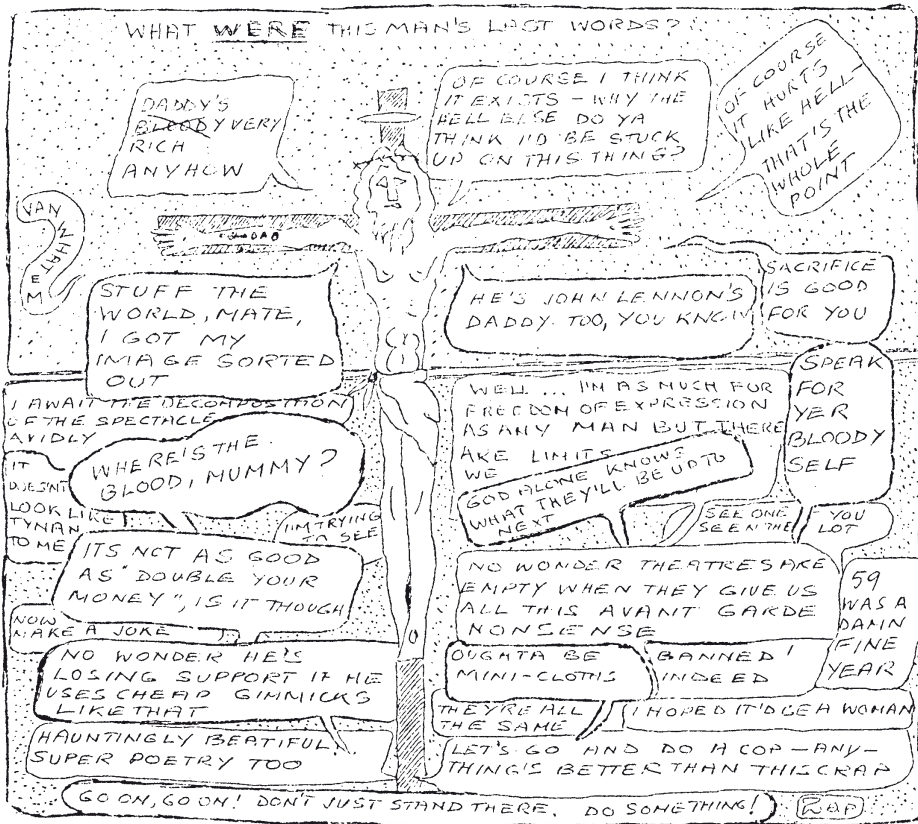 WHAT WERE THIS MAN'S LAST WORDS?
DADDY'S
BLOODY VERY
RICH
ANYHOW
OF COURSE I THINK
IT EXISTS – WHY THE
HELL ELSE DO YA
THINK I'D BE STUCK
UP ON THIS THING?
OF COURSE
IT HURTS
LIKE HELL –
THAT'S THE
WHOLE
POINT
VAN
WHAT
EM
STUFF THE
WORLD, MATE,
I GOT MY
IMAGE SORTED
OUT
HE'S JOHN LENNON'S
DADDY. TOO, YOU KNOW
SACRIFICE
IS GOOD
FOR YOU
I AWAIT THE DECOMPOSITION
OF THE SPECTACLE
AVIDLY
WELL ... I'M AS MUCH FOR
FREEDOM OF EXPRESSION
AS ANY MAN BUT THERE
ARE LIMITS
WE
SPEAK
FOR
YER
BLOODY
SELF
WHERE'S THE.
BLOOD, MUMMY?
GOD ALONE KNOWS
WHAT THEY'LL BE UP TO
NEXT
IT
DOESN'T
LOOK LIKE
TYNAN
TO ME
I'M TRYING
TO SEE
SEE ONE
SEEN THE
YOU
LOT
ITS NOT AS GOOD
AS "DOUBLE YOUR
MONEY", IS IT THOUGH
NO WONDER THEATRES ARE
EMPTY WHEN THEY GIVE US
ALL THIS AVANT GARDE
NONSENSE
59
WAS A
DAMN
FINE
YEAR
NOW
MAKE A JOKE
NO WONDER HE'S
LOSING SUPPORT IF HE
USES CHEAP GIMMICKS
LIKE THAT
OUGHTA BE
MINI-CLOTHS
BANNED!
INDEED
THEY'RE ALL
THE SAME
I HOPED IT'D BE A WOMAN
HAUNTINGLY BEATIFUL!
SUPER POETRY TOO
LET'S GO AND DO A COP – ANY –
THING'S BETTER THAN THIS CRAP
GO ON, GO ON! DON'T JUST STAND THERE. DO SOMETHING!